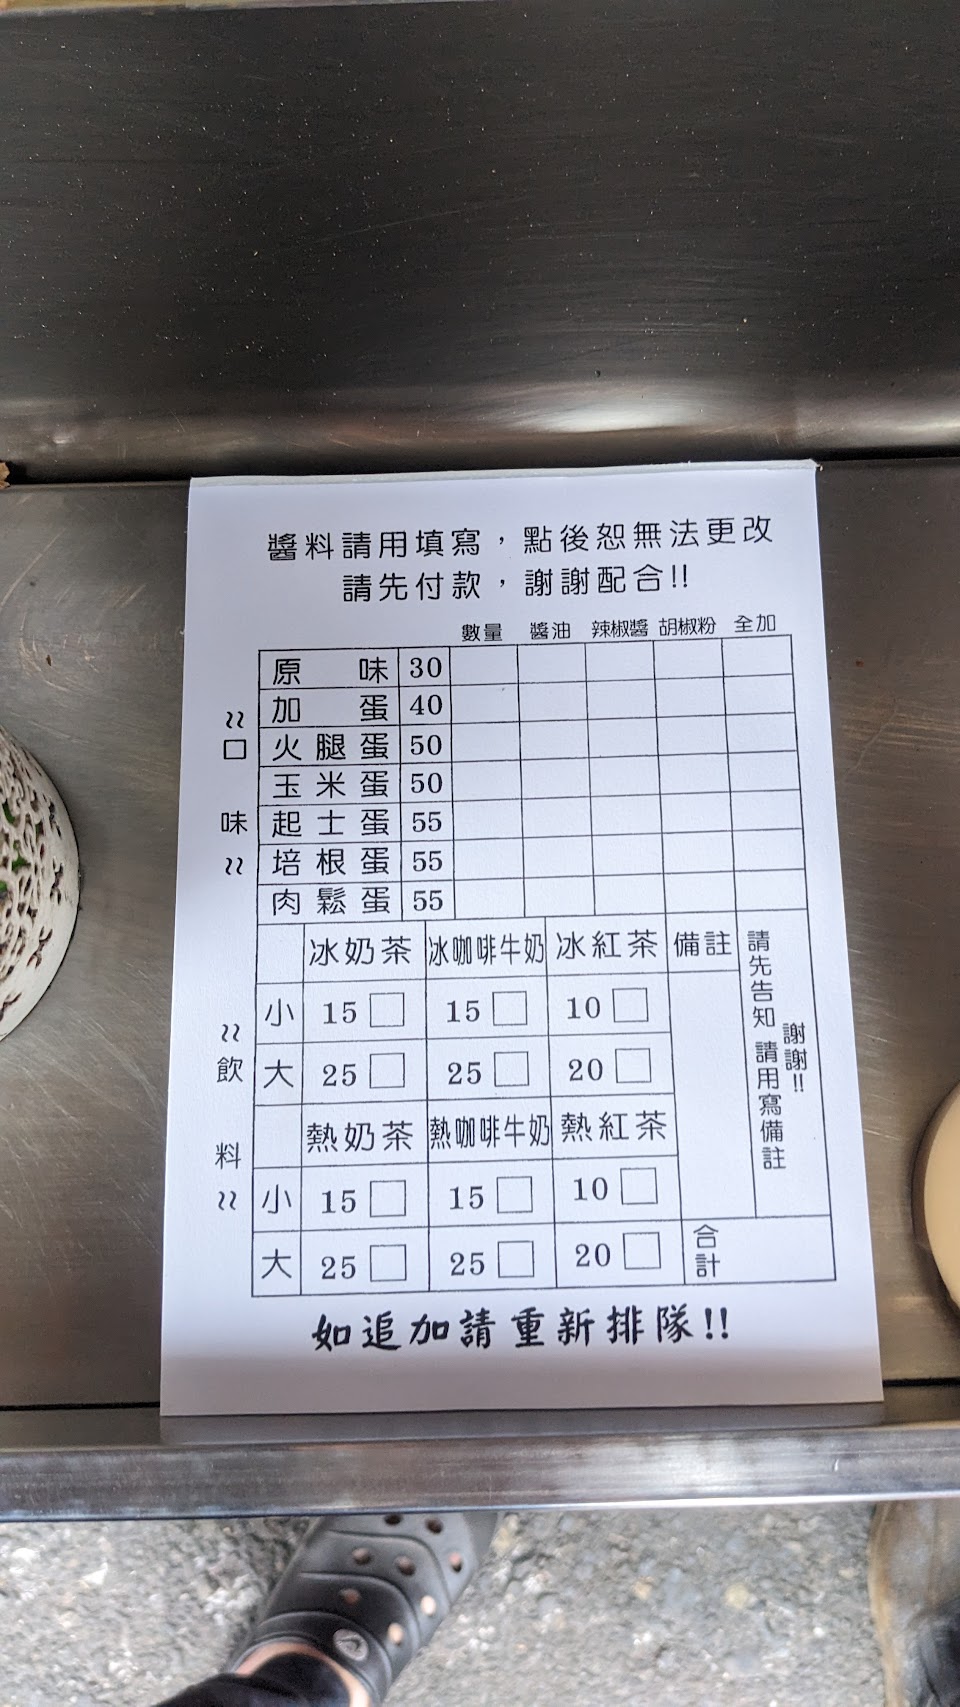 醬料請用填寫，點後恕無法更改
請先付款，謝謝配合!!
數量 醬油 辣椒醬 胡椒粉 全加
~口味~
原味 30
加蛋 40
火腿蛋 50
玉米蛋 50
起士蛋 55
培根蛋 55
肉鬆蛋 55
~飲料~
冰奶茶 冰咖啡牛奶 冰紅茶 備註
小 15 □ 15 □ 10 □
大 25 □ 25 □ 20 □
熱奶茶 熱咖啡牛奶 熱紅茶
小 15 □ 15 □ 10 □
大 25 □ 25 □ 20 □
請先告知 請用寫備註
謝謝!!
合計
如追加請重新排隊!!